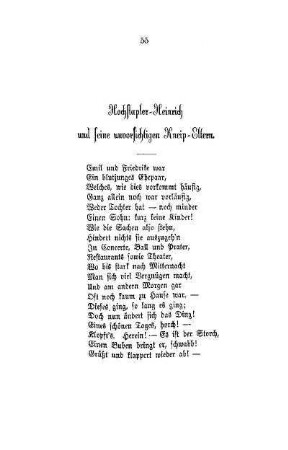 55
Hochstapler-Heinrich
und seine unvorsichtigen Kneip-Eltern.
Emil und Friedrike war
Ein blutjunges Ehepaar,
Welches, wie dies vorkommt häufig,
Ganz allein noch war vorläufig,
Weder Tochter hat — noch minder
Einen Sohn: kurz keine Kinder!
Wie die Sachen also stehn,
Hindert nichts sie auszugeh'n
In Concerte, Ball und Prater,
Restaurants sowie Theater,
Wo bis stark nach Mitternacht
Man sich viel Vergnügen macht,
Und am andern Morgen gar
Oft noch kaum zu Hause war. —
Dieses ging, so lang es ging;
Doch nun ändert sich das Ding!
Eines schönen Tages, horch! —
Klopft's. Herein! — Es ist der Storch,
Einen Buben bringt er, schwabb!
Grüßt und klappert wieder ab! —